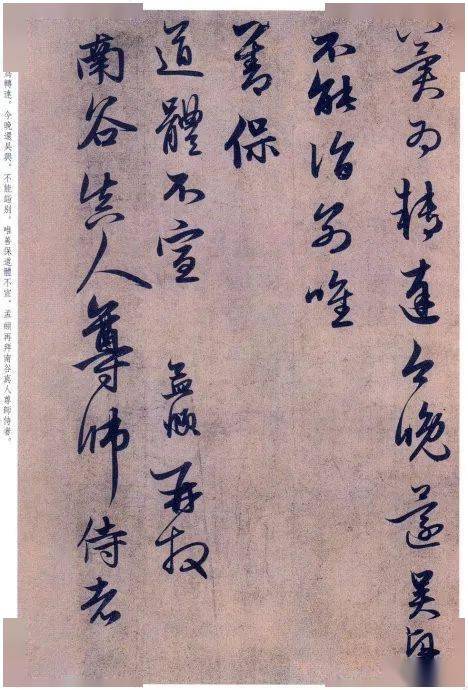 冀為轉達今晚還吳興
不能詣別唯
善保
道體不宣 孟頫再拜
南谷真人尊師侍者
為轉達。今晚還吳興。不能詣別。唯善保道體不宣。孟頫再拜南谷真人尊師侍者。